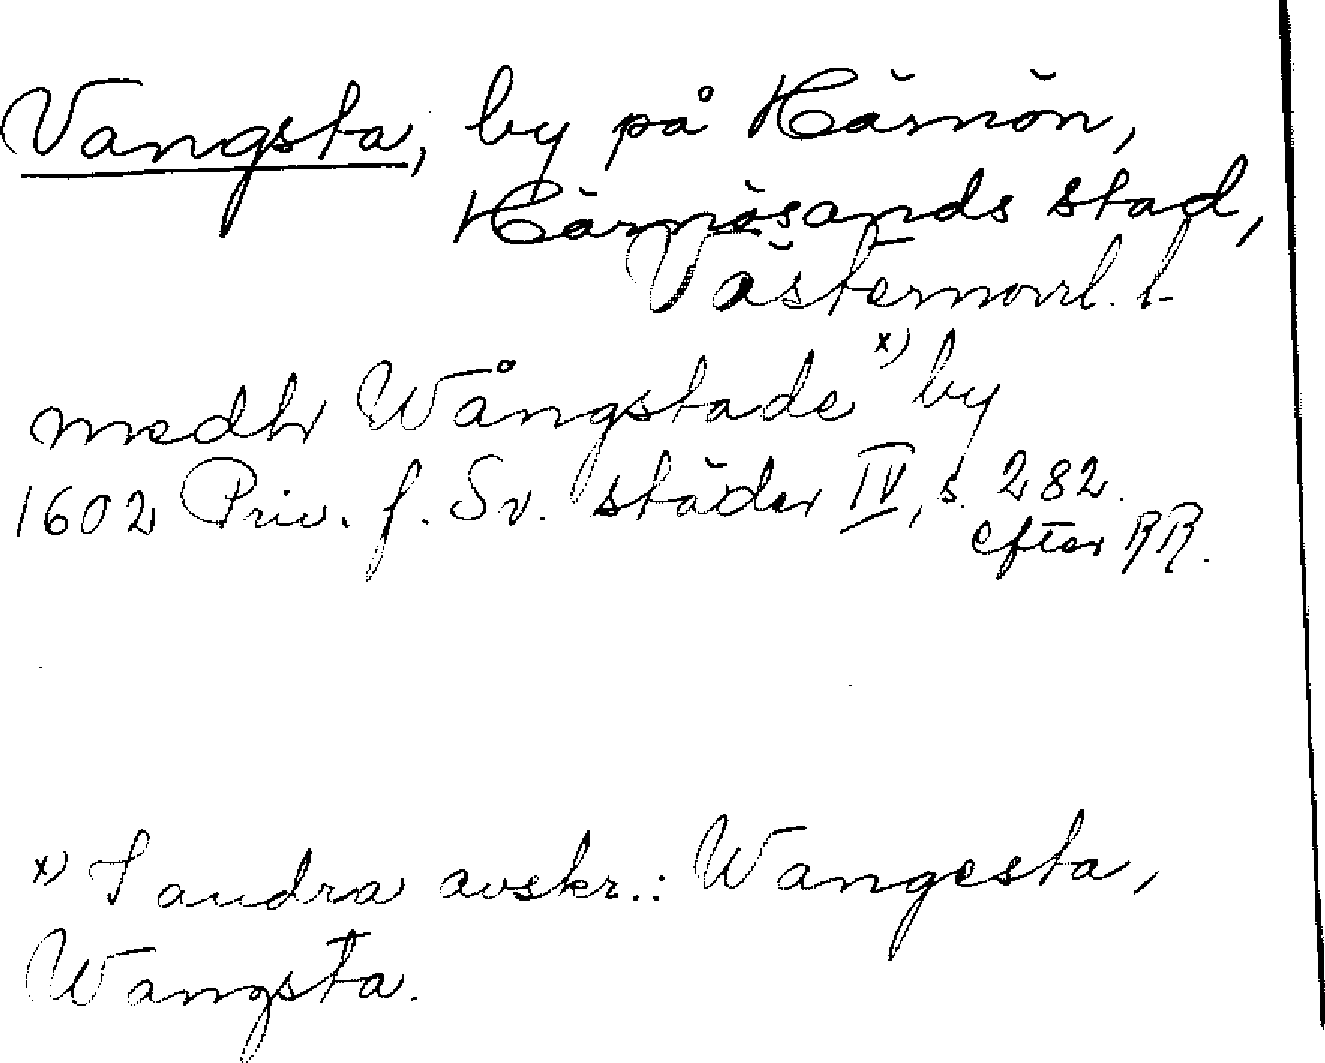 Vangsta, by på Härnön,
Härnösands stad,
Västernorrl. l.
medhr Wångstade x) by
1602 Priv. f. Sv. städer IV, s. 282.
efter RR.
x) I andra avskr.: Wangesta,
Wangsta.